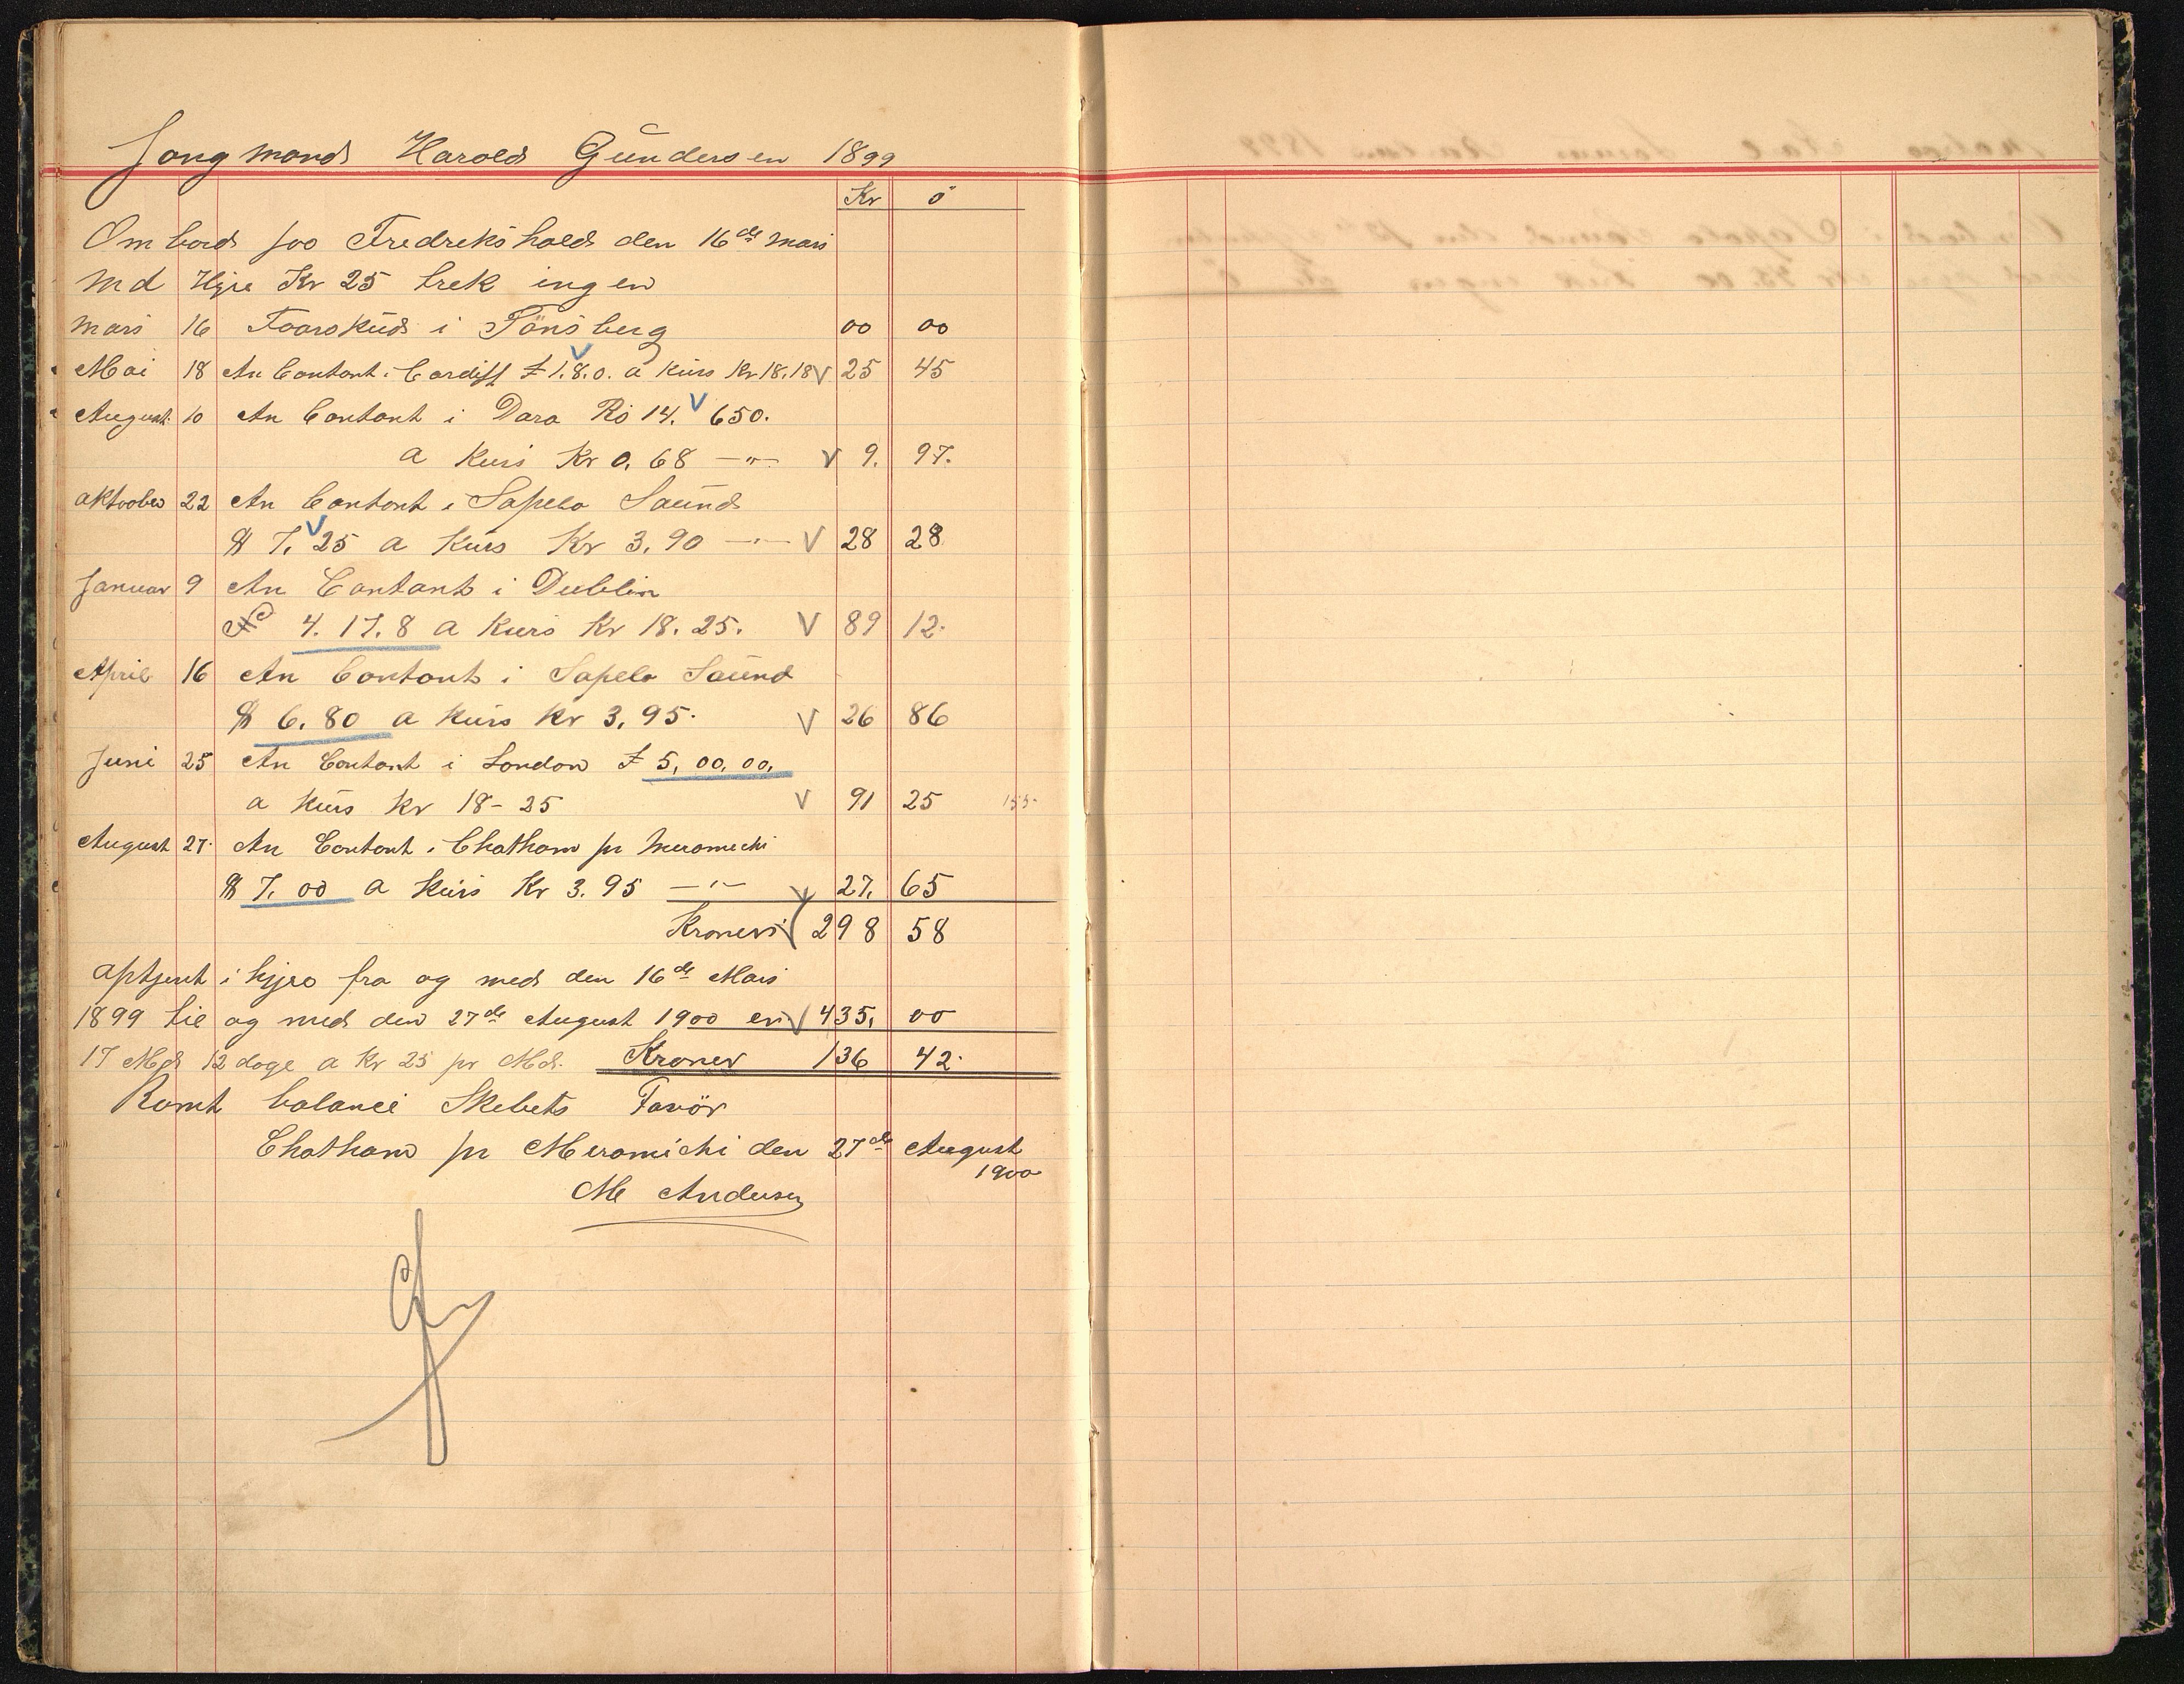 Jongmand Harold Gündersen 1899
Kr ö
Ombord poo Fredrekshald den 16de mars
Md Hyre Kr 25 trek ingen
Mars 16 Foorskud i Tönsberg 00 00
Mai 18 An Contont i Cardiff £ 1.8.0. a kürs Kr 18.18 V 25 45
August 10 An Contont i Dara Rs 14. 650.
a Kurs Kr 0.68 —"— V 9. 97.
aktoober 22 An Contont i Sapelo Saünd
$ 7.25 a Kürs Kr 3.90 —"— V 28 28
Januar 9 An Contant i Dublin
4.17.8 a Kurs Kr 18.25. V 89 12.
April 16 An Contont i Sapelo Saünd
$ 6.80 a Kürs Kr 3.95. V 26 86
Juni 25 An Contont i London £ 5,00,00,
a Kürs Kr 18-25 V 91 25 155-
August 27. An Contont i Chatham pr Meromichi
$ 7.00 a Kürs Kr 3.95 —"— V 27, 65
Kroner V 298 58
aptjent i hyre fra og med den 16de Mars
1899 til og med den 27de August 1900 er V 435, 00
17 Mds 12 dage a Kr 25 pr Md. Kroner 136 42.
Romt balance Skebets Favör
Chatham pr Meromichi den 27de August
1900
M Andersen